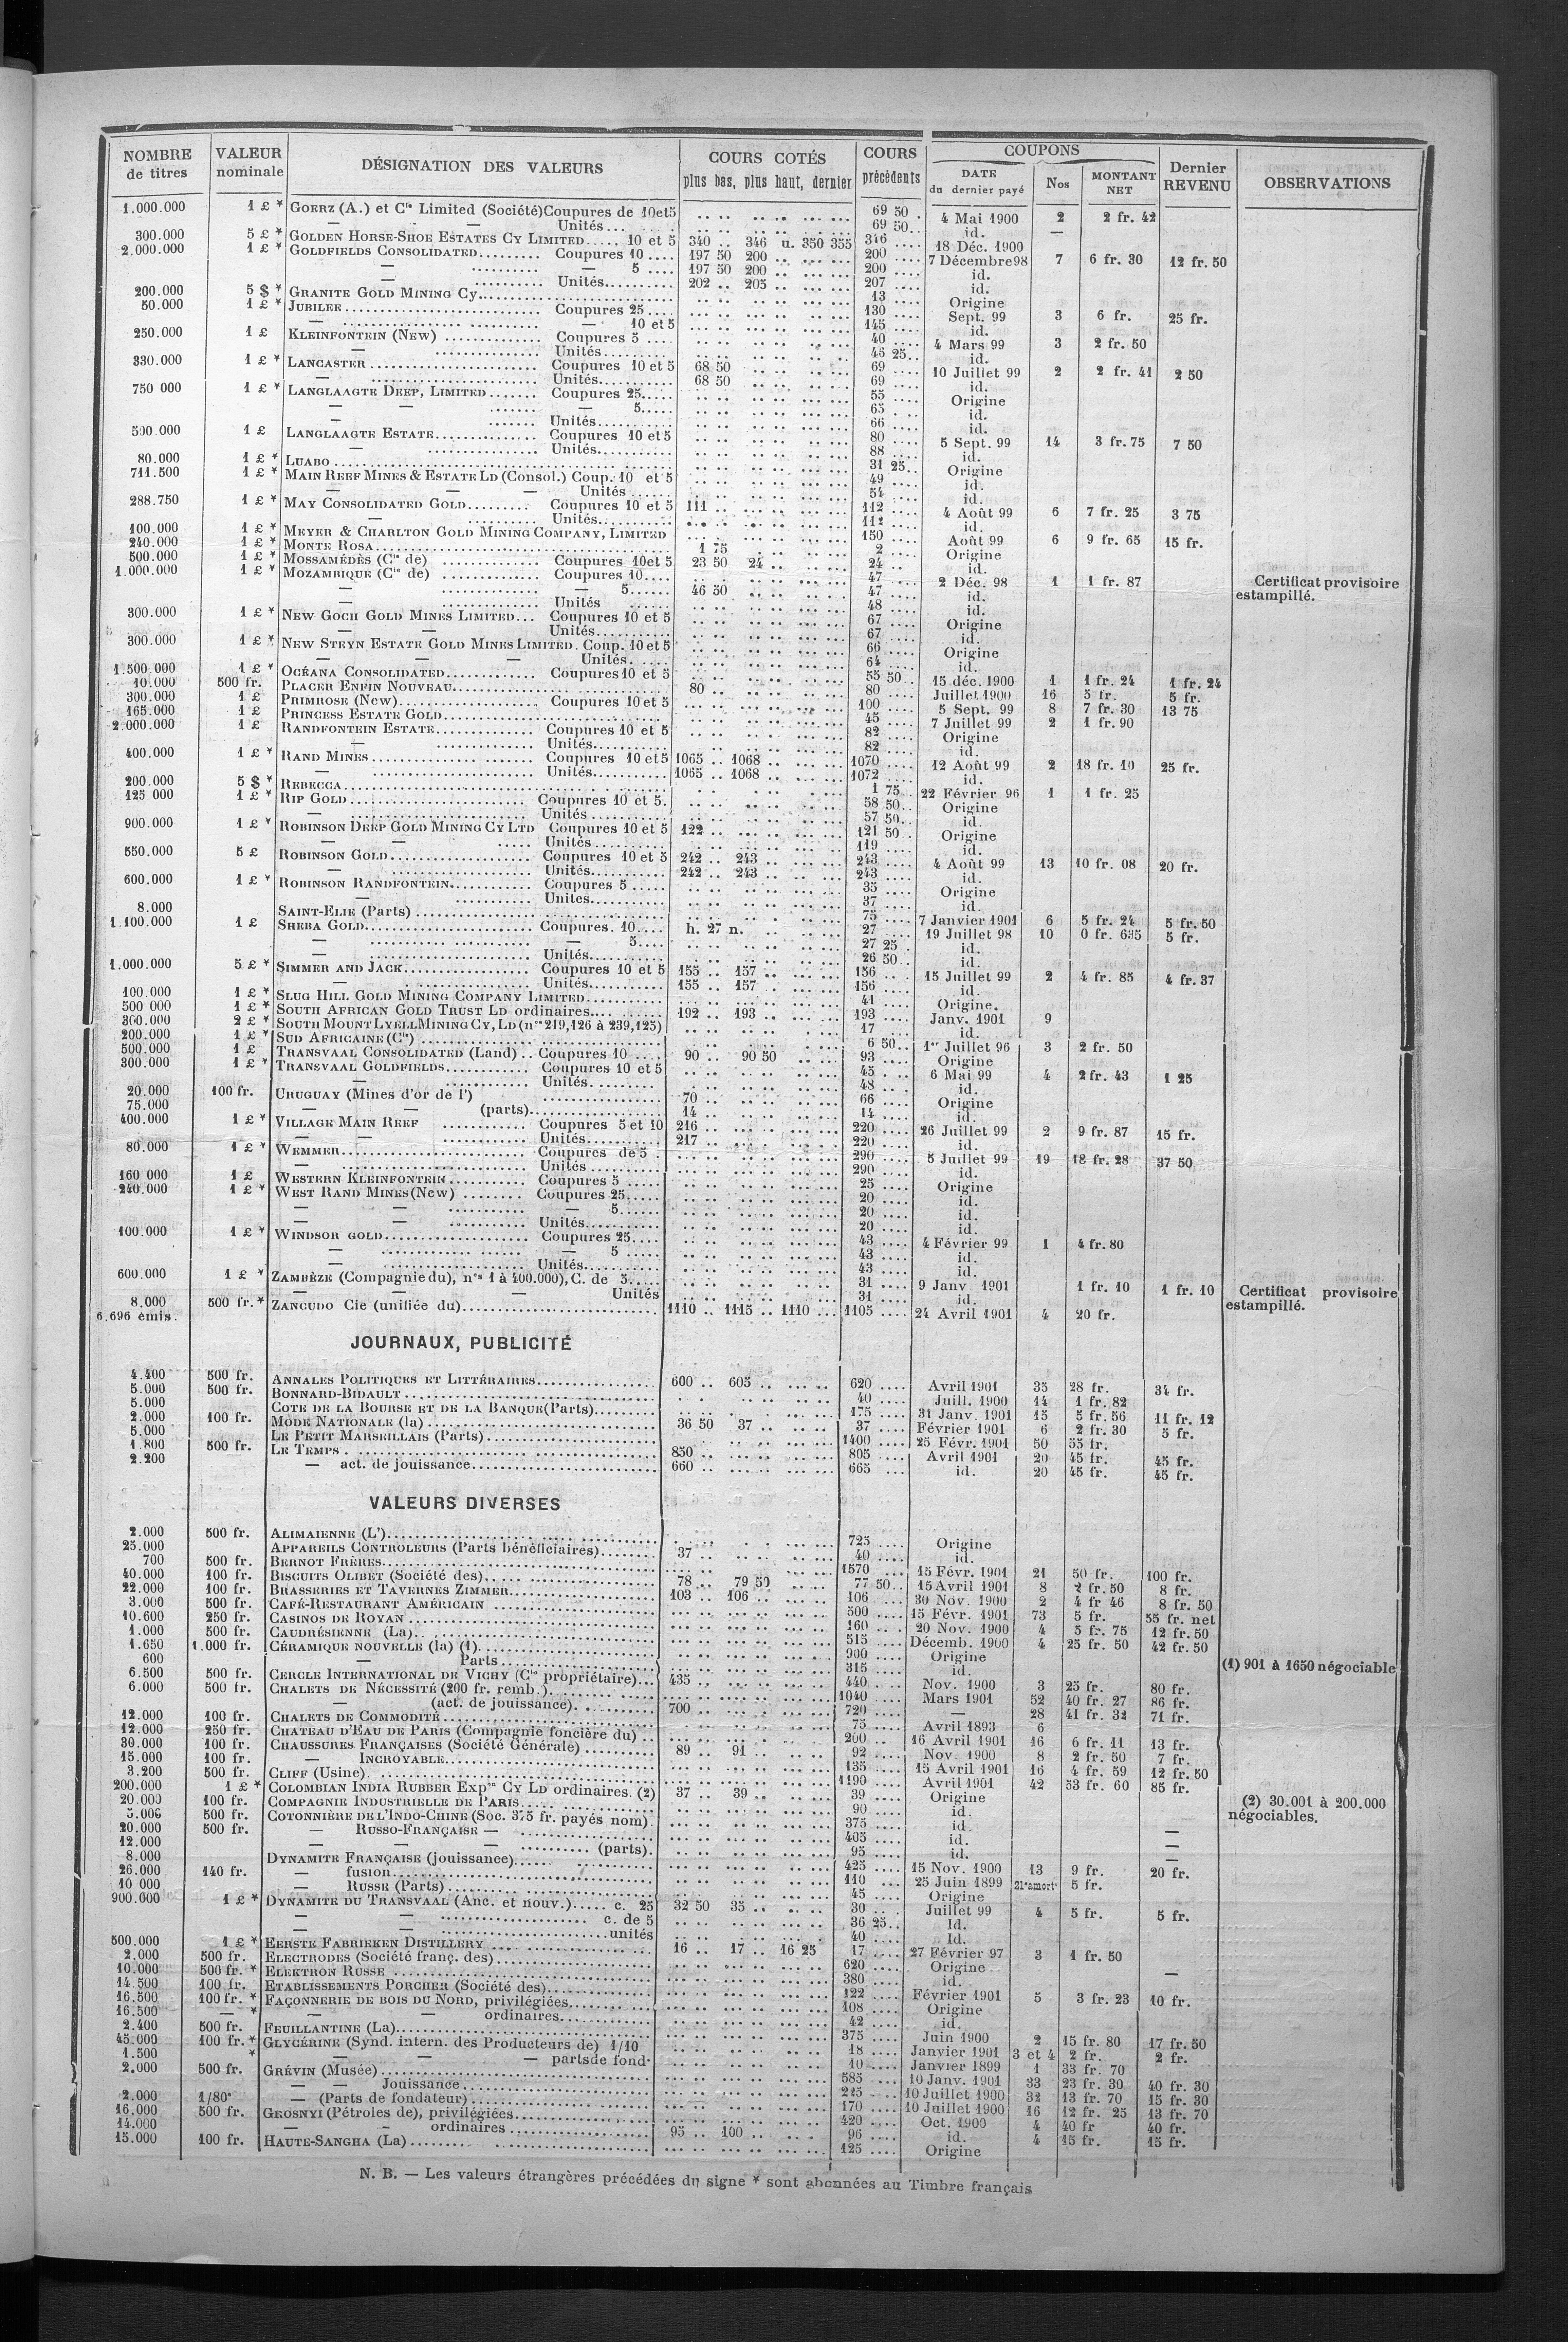 NOMBRE de titres | VALEUR nominale | DÉSIGNATION DES VALEURS | COURS COTÉS plus bas, plus haut, dernier | COURS précédents | COUPONS DATE du dernier payé | Nos | MONTANT NET | Dernier REVENU | OBSERVATIONS
1.000.000 1 £ * GOERZ (A.) et Cie Limited (Société) Coupures de 10 et 5 69 50 4 Mai 1900 2 2 fr. 42
— — Unités 69 50 id. —
300.000 5 £ * GOLDEN HORSE-SHOE ESTATES CY LIMITED 10 et 5 340 346 u. 350 355 346 18 Déc. 1900
2.000.000 1 £ * GOLDFIELDS CONSOLIDATED Coupures 10 197 50 200 200 7 Décembre 98 7 6 fr. 30 12 fr. 50
— — 5 197 50 200 200 id.
— Unités 202 205 207 id.
200.000 5 $ * GRANITE GOLD MINING Cy 13 Origine
50.000 1 £ * JUBILEE Coupures 25 130 Sept. 99 3 6 fr. 25 fr.
— — 10 et 5 145 id.
250.000 1 £ KLEINFONTEIN (New) Coupures 5 40 4 Mars 99 3 2 fr. 50
— Unités 46 25 id.
330.000 1 £ * LANCASTER Coupures 10 et 5 68 50 69 10 Juillet 99 2 2 fr. 41 2 50
— Unités 68 50 69 id.
750 000 1 £ * LANGLAAGTE DEEP, LIMITED Coupures 25 55 Origine
— — — 5 65 id.
— Unités 66 id.
500.000 1 £ LANGLAAGTE ESTATE Coupures 10 et 5 80 5 Sept. 99 14 3 fr. 75 7 50
— Unités 88 id.
80.000 1 £ * LUABO 31 25 Origine
711.500 1 £ * MAIN REEF MINES & ESTATE LD (Consol.) Coup. 10 et 5 49 id.
— — — Unités 54 id.
288.750 1 £ * MAY CONSOLIDATED GOLD Coupures 10 et 5 111 112 4 Août 99 6 7 fr. 25 3 75
— Unités 112 id.
100.000 1 £ * MEYER & CHARLTON GOLD MINING COMPANY, LIMITED 150 Août 99 6 9 fr. 65 15 fr.
240.000 1 £ * MONTE ROSA 1 75 2 Origine
500.000 1 £ * MOSSAMÉDÈS (Cie de) Coupures 10 et 5 23 50 24 24 id.
1.000.000 1 £ * MOZAMBIQUE (Cie de) Coupures 10 47 2 Déc. 98 1 1 fr. 87 Certificat provisoire
— — 5 46 50 47 id. estampillé.
— Unités 48 id.
300.000 1 £ * NEW GOCH GOLD MINES LIMITED Coupures 10 et 5 67 Origine
— — Unités 67 id.
300.000 1 £ * NEW STEYN ESTATE GOLD MINES LIMITED. Coup. 10 et 5 66 Origine
— — — Unités 64 id.
1.500.000 1 £ * OCÉANA CONSOLIDATED Coupures 10 et 5 55 50 15 déc. 1900 1 1 fr. 24 1 fr. 24
10.000 500 fr. PLACER ENFIN NOUVEAU 80 80 Juillet 1900 16 5 fr. 5 fr.
300.000 1 £ PRIMROSE (New) Coupures 10 et 5 100 5 Sept. 99 8 7 fr. 30 13 75
165.000 1 £ PRINCESS ESTATE GOLD 45 7 Juillet 99 2 1 fr. 90
2.000.000 1 £ RANDFONTEIN ESTATE Coupures 10 et 5 82 Origine
— Unités 82 id.
400.000 1 £ * RAND MINES Coupures 10 et 5 1065 1068 1070 12 Août 99 2 18 fr. 10 25 fr.
— Unités 1065 1068 1072 id.
200.000 5 $ * REBECCA 1 75 22 Février 96 1 1 fr. 25
125 000 1 £ * RIP GOLD Coupures 10 et 5. 58 50 Origine
— Unités 57 50 id.
900.000 1 £ * ROBINSON DEEP GOLD MINING CY LTD Coupures 10 et 5 122 121 50 Origine
— — Unités 119 id.
550.000 5 £ ROBINSON GOLD Coupures 10 et 5 242 243 243 4 Août 99 13 10 fr. 08 20 fr.
— Unités 242 243 243 id.
600.000 1 £ * ROBINSON RANDFONTEIN Coupures 5 35 Origine
— Unités 37 id.
8.000 SAINT-ELIE (Parts) 75 7 Janvier 1901 6 5 fr. 24 5 fr. 50
1.100.000 1 £ SHEBA GOLD Coupures. 10 h. 27 n. 27 19 Juillet 98 10 0 fr. 635 5 fr.
— — 5 27 25 id.
— Unités 26 50 id.
1.000.000 5 £ * SIMMER AND JACK Coupures 10 et 5 155 157 156 15 Juillet 99 2 4 fr. 85 4 fr. 37
— Unités 155 157 156 id.
100.000 1 £ * SLUG HILL GOLD MINING COMPANY LIMITED 41 Origine.
500 000 1 £ * SOUTH AFRICAN GOLD TRUST LD ordinaires 192 193 193 Janv. 1901 9
300.000 2 £ * SOUTH MOUNT LYELL MINING CY, LD (nos 219,126 à 239,125) 17 id.
200.000 1 £ * SUD AFRICAINE (Cie) 6 50 1er Juillet 96 3 2 fr. 50
500.000 1 £ TRANSVAAL CONSOLIDATED (Land) Coupures 10 90 90 50 93 Origine
300.000 1 £ * TRANSVAAL GOLDFIELDS Coupures 10 et 5 45 6 Mai 99 4 2 fr. 43 1 25
— Unités 48 id.
20.000 100 fr. URUGUAY (Mines d'or de l') 70 66 Origine
75.000 — — (parts) 14 14 id.
400.000 1 £ * VILLAGE MAIN REEF Coupures 5 et 10 216 220 26 Juillet 99 2 9 fr. 87 15 fr.
— — Unités 217 220 id.
80.000 1 £ * WEMMER Coupures de 5 290 5 Juillet 99 19 18 fr. 28 37 50
— Unités 290 id.
160 000 1 £ WESTERN KLEINFONTEIN Coupures 5 25 Origine
240.000 1 £ * WEST RAND MINES (New) Coupures 25 20 id.
— — — 5 20 id.
— — Unités 20 id.
100.000 1 £ * WINDSOR GOLD Coupures 25 43 4 Février 99 1 4 fr. 80
— — 5 43 id.
— Unités 43 id.
600.000 1 £ * ZAMBÈZE (Compagnie du), nos 1 à 400.000), C. de 5 31 9 Janv 1901 1 fr. 10 1 fr. 10 Certificat provisoire
— — — Unités 31 id. estampillé.
8.000 500 fr. * ZANCUDO Cie (unifiée du) 1110 1115 1110 1105 24 Avril 1901 4 20 fr.
6.696 émis.
JOURNAUX, PUBLICITÉ
4.400 500 fr. ANNALES POLITIQUES ET LITTÉRAIRES 600 605 620 Avril 1901 35 28 fr. 34 fr.
5.000 500 fr. BONNARD-BIDAULT 40 Juill. 1900 14 1 fr. 82
5.000 COTE DE LA BOURSE ET DE LA BANQUE (Parts) 175 31 Janv. 1901 15 5 fr. 56 11 fr. 12
2.000 100 fr. MODE NATIONALE (la) 36 50 37 37 Février 1901 6 2 fr. 30 5 fr.
5.000 LE PETIT MARSEILLAIS (Parts) 1400 25 Févr. 1901 50 55 fr.
1.800 500 fr. LE TEMPS 850 805 Avril 1901 20 45 fr. 45 fr.
2.200 — act. de jouissance 660 665 id. 20 45 fr. 45 fr.
VALEURS DIVERSES
2.000 500 fr. ALIMAIENNE (L') 725 Origine
25.000 APPAREILS CONTROLEURS (Parts bénéficiaires) 37 40 id.
700 500 fr. BERNOT FRÈRES 1570 15 Févr. 1901 21 50 fr. 100 fr.
40.000 100 fr. BISCUITS OLIBET (Société des) 78 79 50 77 50 15 Avril 1901 8 2 fr. 50 8 fr.
22.000 100 fr. BRASSERIES ET TAVERNES ZIMMER 103 106 106 30 Nov. 1900 2 4 fr 46 8 fr. 50
3.000 500 fr. CAFÉ-RESTAURANT AMÉRICAIN 500 15 Févr. 1901 73 5 fr. 55 fr. net
10.600 250 fr. CASINOS DE ROYAN 160 20 Nov. 1900 4 5 fr. 75 12 fr. 50
1.000 500 fr. CAUDRÉSIENNE (La) 515 Décemb. 1900 4 25 fr. 50 42 fr. 50
1.650 1.000 fr. CÉRAMIQUE NOUVELLE (la) (1) 900 Origine
600 — Parts 315 id. (1) 901 à 1650 négociable
6.500 500 fr. CERCLE INTERNATIONAL DE VICHY (Cie propriétaire) 435 440 Nov. 1900 3 25 fr. 80 fr.
6.000 500 fr. CHALETS DE NÉCESSITÉ (200 fr. remb.) 1040 Mars 1901 52 40 fr. 27 86 fr.
— (act. de jouissance) 700 720 — 28 41 fr. 32 71 fr.
12.000 100 fr. CHALETS DE COMMODITÉ 75 Avril 1893 6
12.000 250 fr. CHATEAU D'EAU DE PARIS (Compagnie foncière du) 200 16 Avril 1901 16 6 fr. 11 13 fr.
30.000 100 fr. CHAUSSURES FRANÇAISES (Société Générale) 89 91 92 Nov. 1900 8 2 fr. 50 7 fr.
15.000 100 fr. — INCROYABLE 135 15 Avril 1901 16 4 fr. 59 12 fr. 50
3.200 500 fr. CLIFF (Usine) 1190 Avril 1901 42 53 fr. 60 85 fr.
200.000 1 £ * COLOMBIAN INDIA RUBBER Expon CY LD ordinaires. (2) 37 39 39 Origine
20.000 100 fr. COMPAGNIE INDUSTRIELLE DE PARIS 90 id. (2) 30.001 à 200.000
500 fr. COTONNIÈRE DE L'INDO-CHINE (Soc. 375 fr. payés nom) 375 id. négociables.
20.000 500 fr. — RUSSO-FRANÇAISE — 405 id. —
12.000 — — — (parts). 95 id. —
8.000 DYNAMITE FRANÇAISE (jouissance) 425 15 Nov. 1900 13 9 fr. 20 fr.
26.000 140 fr. — fusion 110 25 Juin 1899 21e amortt 5 fr.
10 000 — RUSSE (Parts) 45 Origine
900.000 1 £ * DYNAMITE DU TRANSVAAL (Anc. et nouv.) c. 25 32 50 35 30 Juillet 99 4 5 fr. 5 fr.
— — c. de 5 36 25 Id.
— — unités 40 Id.
500.000 1 £ * EERSTE FABRIEKEN DISTILLERY 16 17 16 25 17 27 Février 97 3 1 fr. 50
2.000 500 fr. ELECTRODES (Société franç. des) 620 Origine
10.000 500 fr. * ELEKTRON RUSSE 380 id. —
14.500 100 fr. ETABLISSEMENTS PORCHER (Société des) 122 Février 1901 5 3 fr. 23 10 fr.
16.500 100 fr. * FAÇONNERIE DE BOIS DU NORD, privilégiées 108 Origine
16.500 — * — — ordinaires 42 id.
2.400 500 fr. FEUILLANTINE (La) 375 Juin 1900 2 15 fr. 80 17 fr. 50
45.000 100 fr. * GLYCÉRINE (Synd. intern. des Producteurs de) 1/10 18 Janvier 1901 3 et 4 2 fr. 2 fr.
1.500 * — — — parts de fondr 10 Janvier 1899 1 33 fr. 70
2.000 500 fr. GRÉVIN (Musée) 585 10 Janv. 1901 33 23 fr. 30 40 fr. 30
— Jouissance 245 10 Juillet 1900 32 13 fr. 70 15 fr. 30
2.000 1/80e — (Parts de fondateur) 170 10 Juillet 1900 16 12 fr. 25 13 fr. 70
16.000 500 fr. GROSNYI (Pétroles de), privilégiées 420 Oct. 1900 4 40 fr 40 fr.
14.000 — — ordinaires 95 100 96 id. 4 15 fr. 15 fr.
15.000 100 fr. HAUTE-SANGHA (La) 125 Origine
N. B. — Les valeurs étrangères précédées du signe * sont abonnées au Timbre français